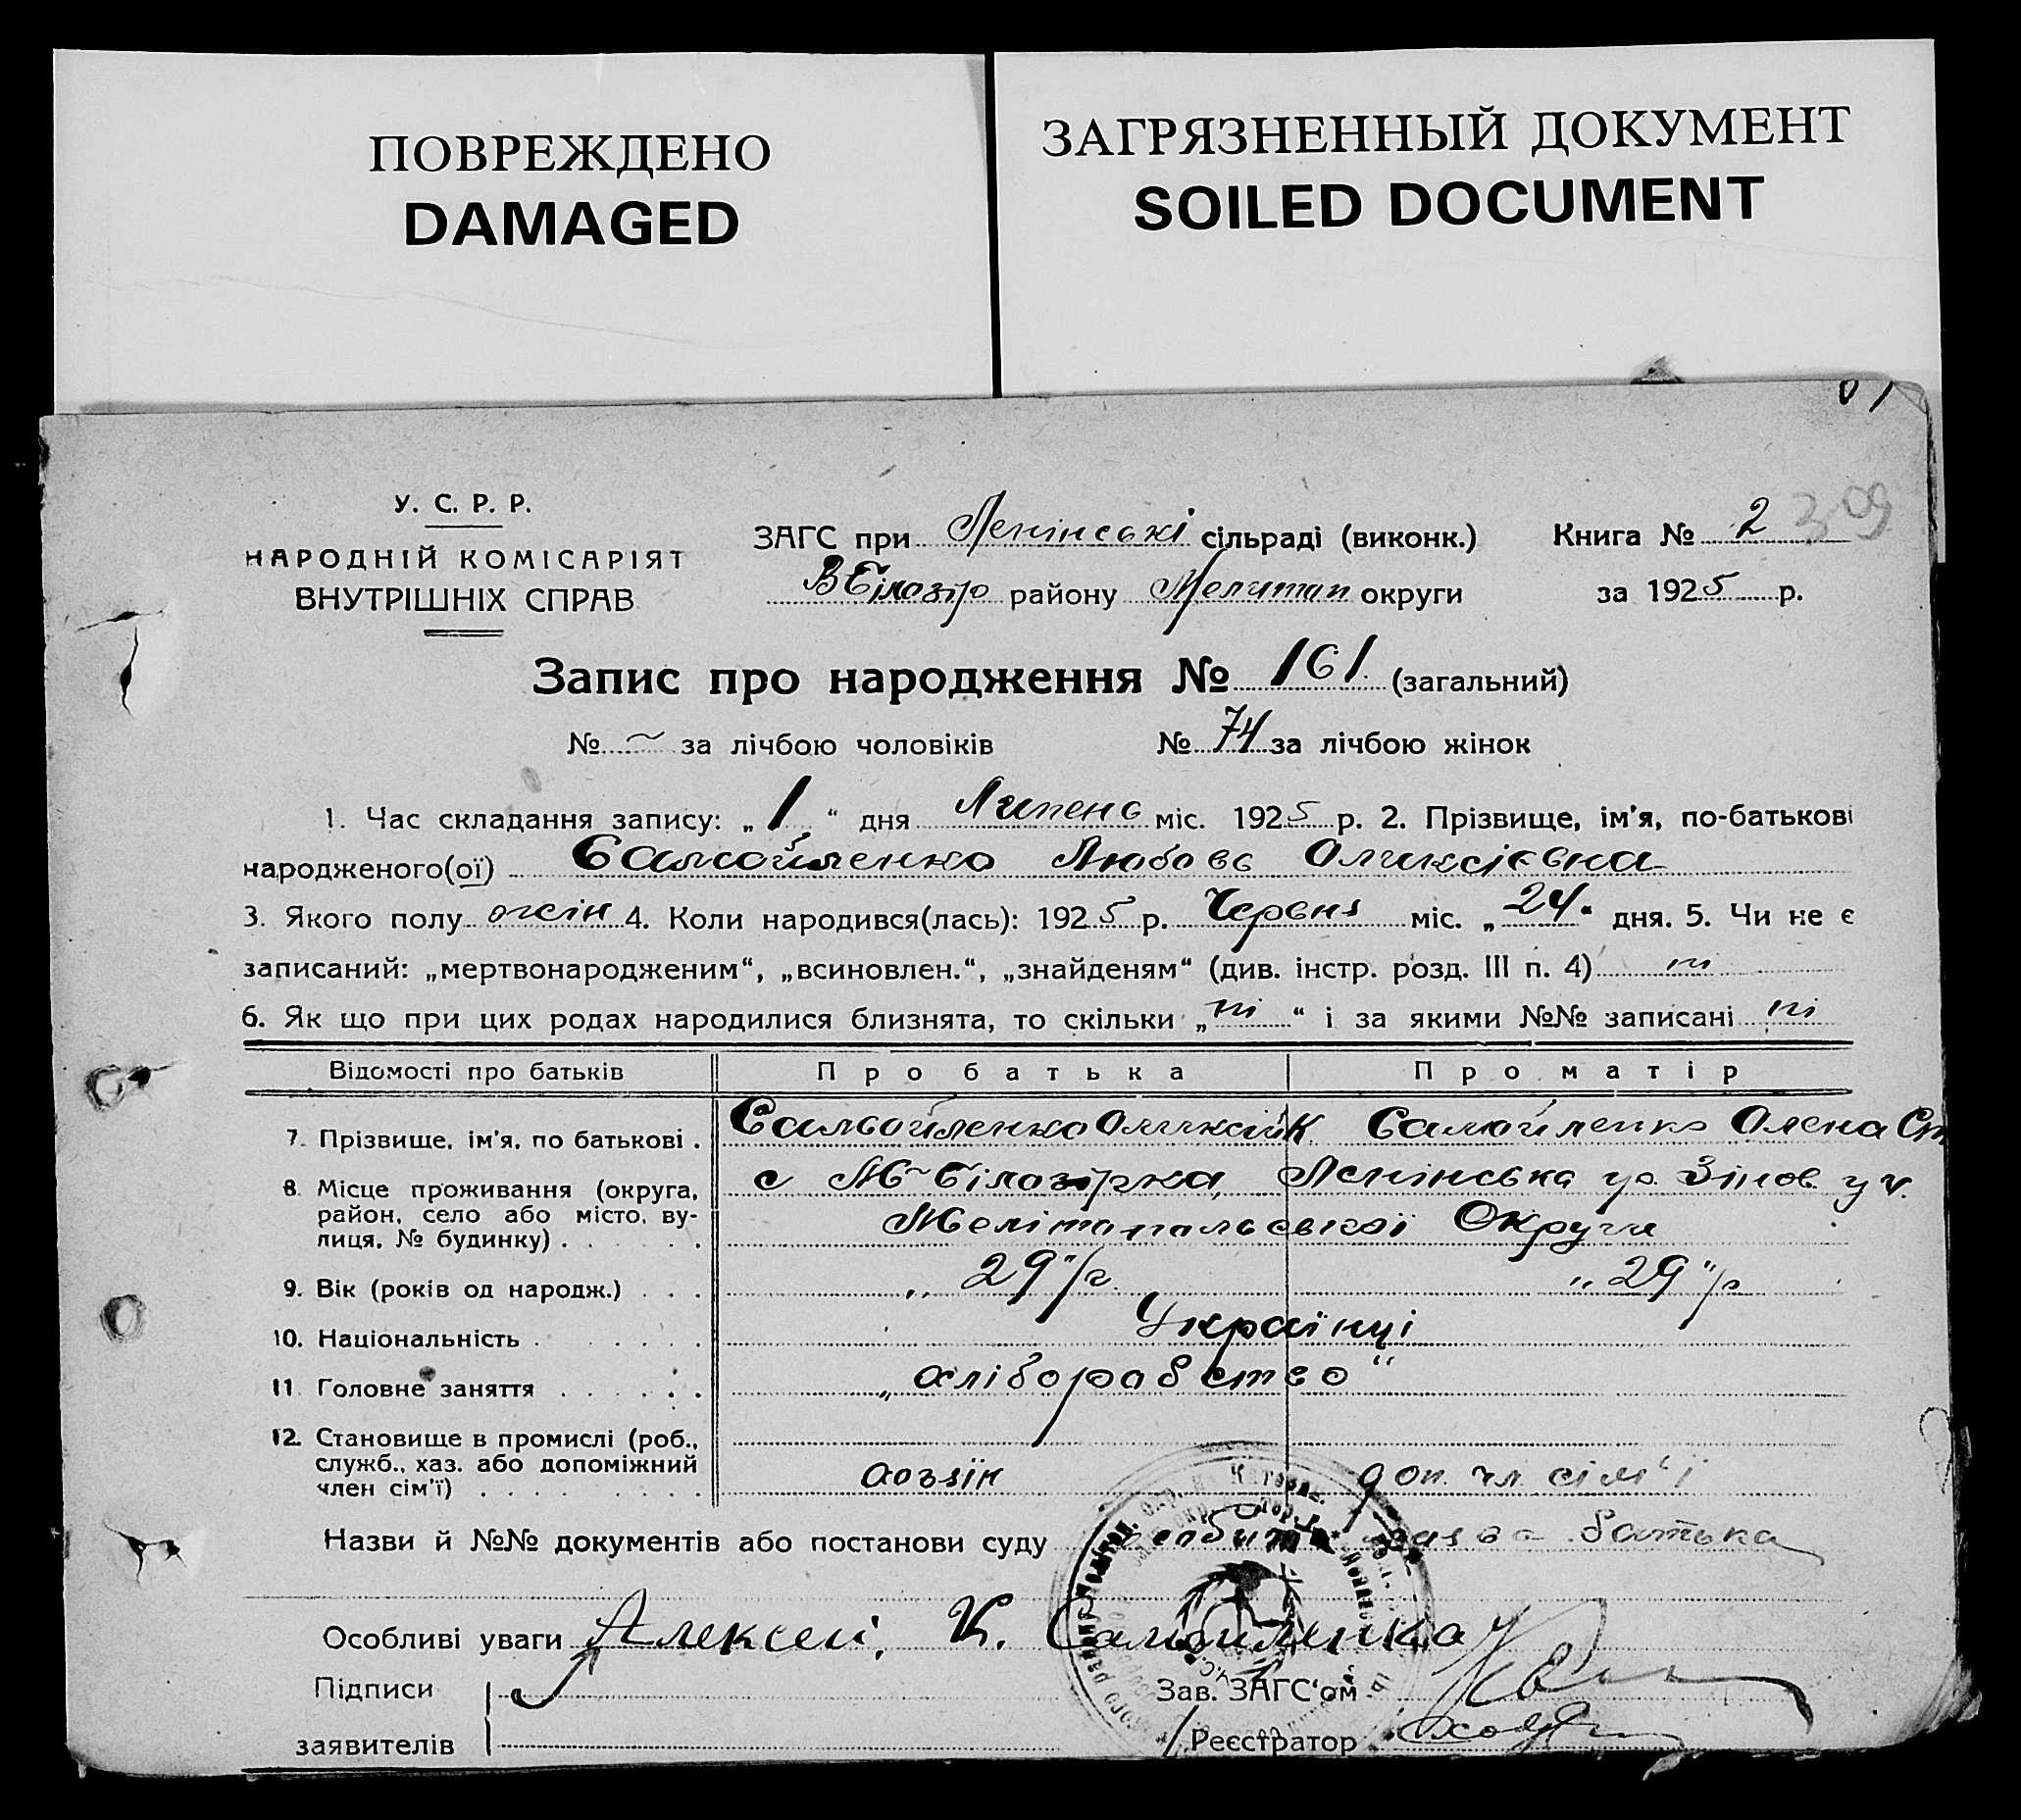 ПОВРЕЖДЕНО
DAMAGED
ЗАГРЯЗНЕННЫЙ ДОКУМЕНТ
SOILED DOCUMENT
У. С. Р. Р.
НАРОДНІЙ КОМІСАРІЯТ
ВНУТРІШНІХ СПРАВ
ЗАГС при Ленінські сільраді (виконк.) Книга № 2 309
В Білозір району Мелитоп округи за 1925 р.
Запис про народження № 161 (загальний)
№ ~ за лічбою чоловіків № 74 за лічбою жінок
1. Час складання запису: „ 1 “ дня Липень міс. 1925 р. 2. Прізвище, ім'я, по-батькові
народженого(ої) Самойленко Любовь Олексієвна
3. Якого полу жін 4. Коли народився(лась): 1925 р. Червня міс. „ 24 “ дня. 5. Чи не є
записаний: „мертвонародженим“, „всиновлен.“, „знайденям“ (див. інстр. розд. III п. 4) ні
6. Як що при цих родах народилися близнята, то скільки „ ні “ і за якими №№ записані ні
Відомості про батьків Про батька Про матір
7. Прізвище, ім'я, по батькові . Самойленко Олексій К. Самойленко Олена Ст
8. Місце проживання (округа, с М-Білозірка, Ленінська
район, село або місто, ву-
лиця, № будинку) . Мелітопольської Округи
9. Вік (років од народж.) . . . „ 29 “/р. „ 29 “/р
10. Національність . Українці
11. Головне заняття . „ хліборобство “
12. Становище в промислі (роб.,
служб., хаз. або допоміжний
член сім'ї) . хозяїн доп. чл. сім'ї
Назви й №№ документів або постанови суду особиста заява батька
Особливі уваги Алексей, К. Самойленко
Підписи
заявителів
Зав. ЗАГС'ом
Реєстратор